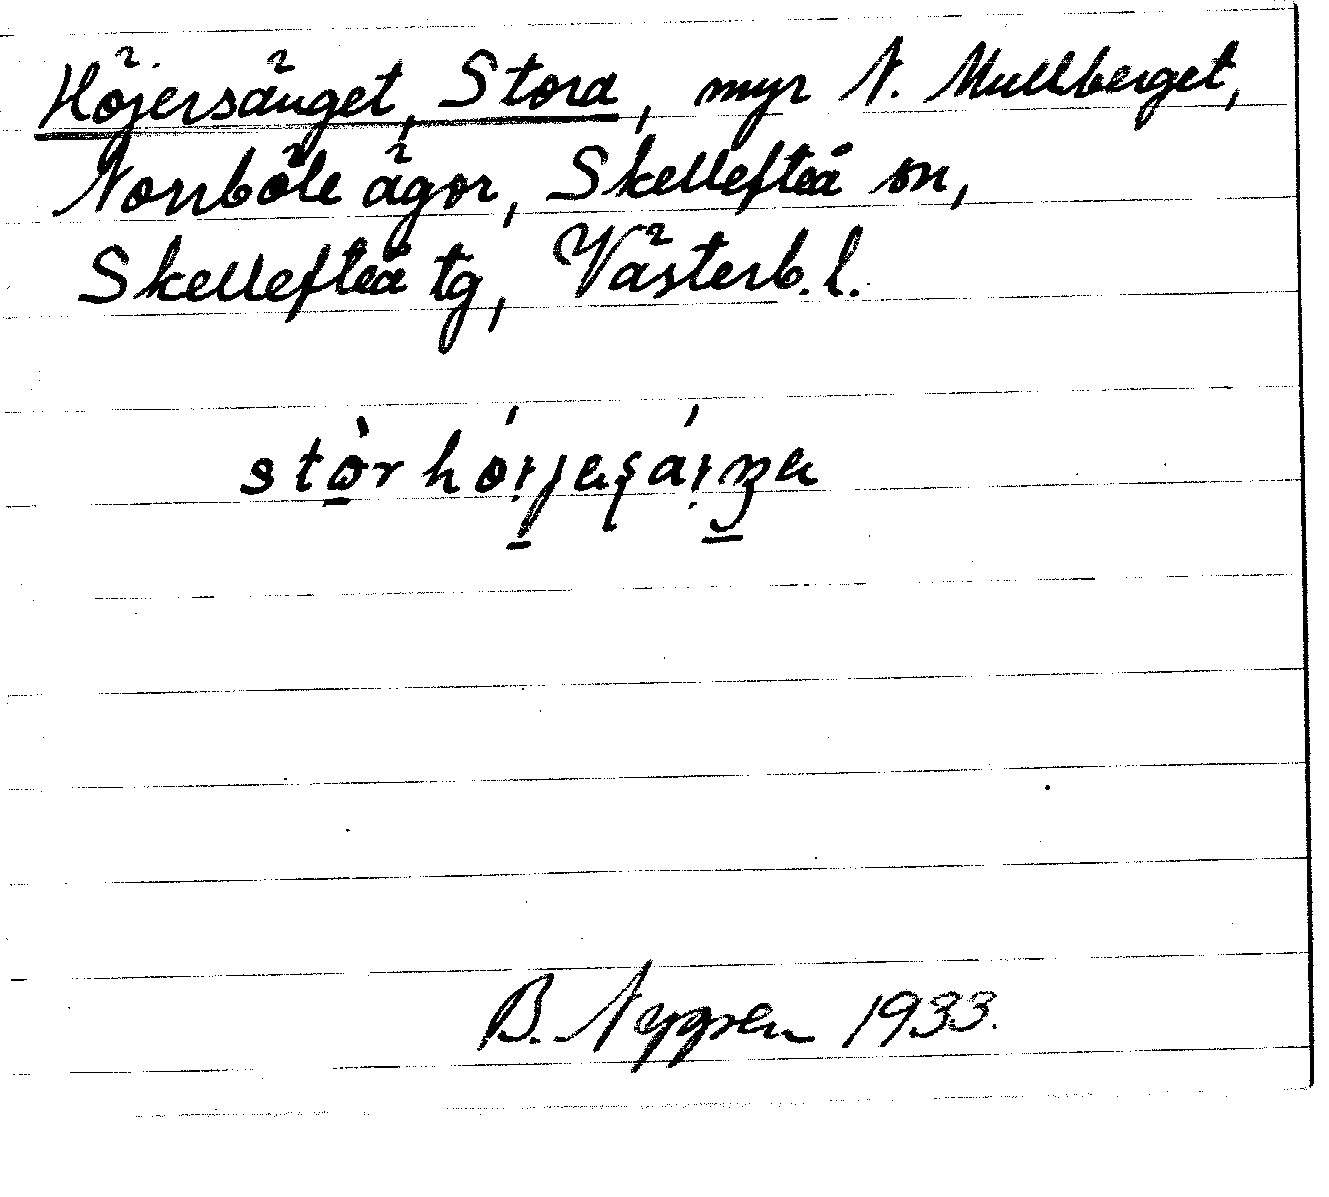 Höjersänget, Stora, myr N. Mullberget,
Norrböle ägor, Skellefteå sn,
Skellefteå tg, Västerb. l.
B. Nygren 1933.